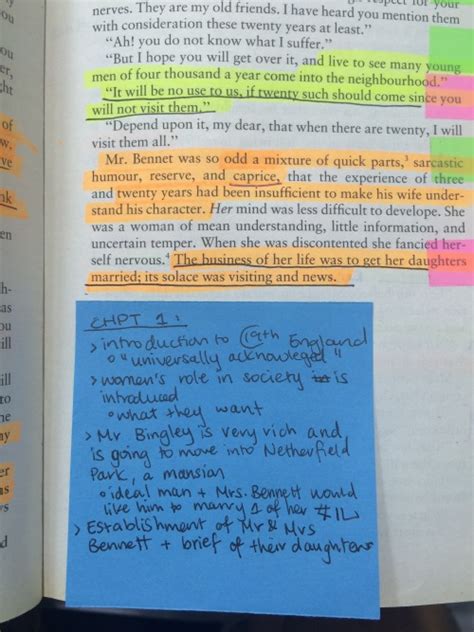 respect for your
nerves. They are my old friends. I have heard you mention them
with consideration these twenty years at least."
"Ah! you do not know what I suffer."
"But I hope you will get over it, and live to see many young
men of four thousand a year come into the neighbourhood."
"It will be no use to us, if twenty such should come since you
will not visit them."
"Depend upon it, my dear, that when there are twenty, I will
visit them all."
Mr. Bennet was so odd a mixture of quick parts,³ sarcastic
humour, reserve, and caprice, that the experience of three
and twenty years had been insufficient to make his wife under-
stand his character. Her mind was less difficult to develope. She
was a woman of mean understanding, little information, and
uncertain temper. When she was discontented she fancied her-
self nervous.⁴ The business of her life was to get her daughters
married; its solace was visiting and news.
CHPT 1:
> introduction to 19th England
"universally acknowleged"
> women's role in society is
introduced
what they want
> Mr Bingley is very rich and
is going to move into Netherfield
Park, a mansion
ideal man + Mrs. Bennett would
like him to marry 1 of her
> Establishment of Mr & Mrs
Bennett + brief of their daughters